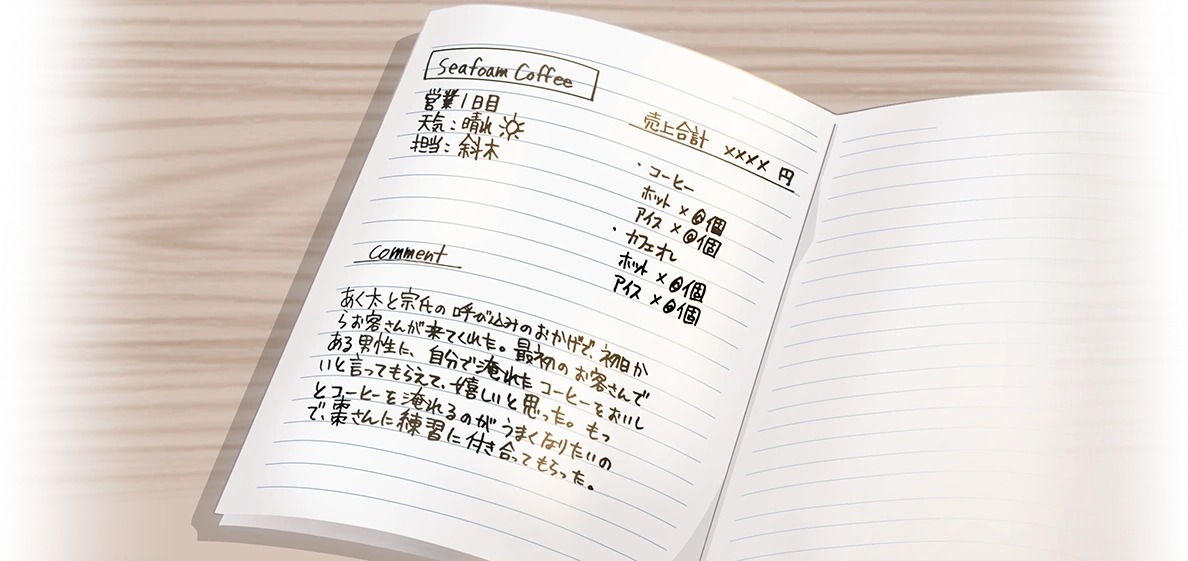 Seafoam Coffee
営業1日目
天気：晴れ
担当：斜木
売上合計 ×××× 円
・コーヒー
ホット × 個
アイス × 個
・カフェオレ
ホット × 個
アイス × 個
comment
あく太と宗氏の呼び込みのおかげで、初日か
らお客さんが来てくれた。最初のお客さんで
ある男性に、自分で淹れたコーヒーをおいし
いと言ってもらえて、嬉しいと思った。もっ
とコーヒーを淹れるのがうまくなりたいの
で、棗さんに練習に付き合ってもらった。